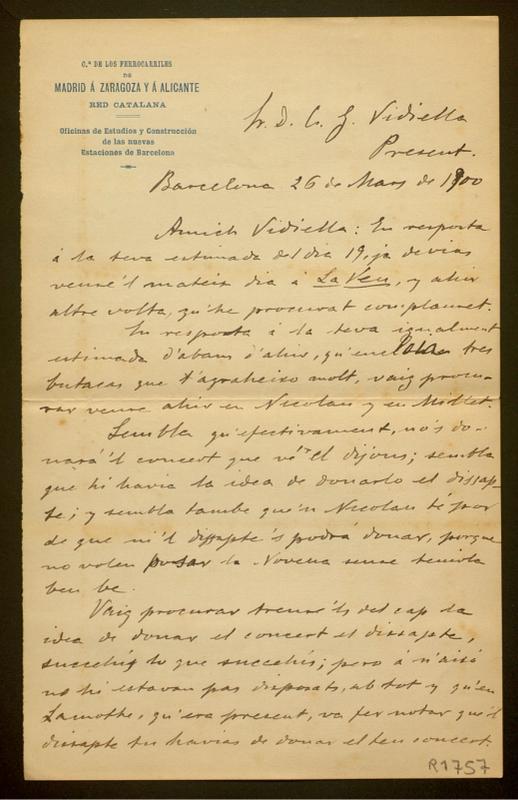 C.ª DE LOS FERROCARRILES
DE
MADRID Á ZARAGOZA Y Á ALICANTE
RED CATALANA
Oficinas de Estudios y Construcción
de las nuevas
Estaciones de Barcelona
Sr. D. C. G. Vidiella
Present.
Barcelona 26 de Mars de 1900
Amich Vidiella: En resposta
á la teva estimada del dia 19, ja devias
veure'l mateix dia á La Veu, y ahir
altre volta, qu'he procurat complauret.
En resposta á la teva igualment
estimada d'abans d'ahir, qu'inclòia tres
butacas que t'agraheixo molt, vaig procu-
rar veure ahir en Nicolau y en Millet.
Sembla qu'efectivament, no's do-
nará'l concert que vé el dijous; sembla
que hi havia la idea de donarlo el dissap-
te; y sembla tambe que'n Nicolau té por
de que ni'l dissapte's podrá donar, porque
no volen posar la Novena sense tenirla
ben be.
Vaig procurar treure'ls del cap la
idea de donar el concert el dissapte,
succehís lo que succehís; pero á n'aixó
no hi estavan pas disposats, ab tot y qu'en
Lamothe, qu'era present, va fer notar que'l
dissapte tu havias de donar el teu concert.
R1757